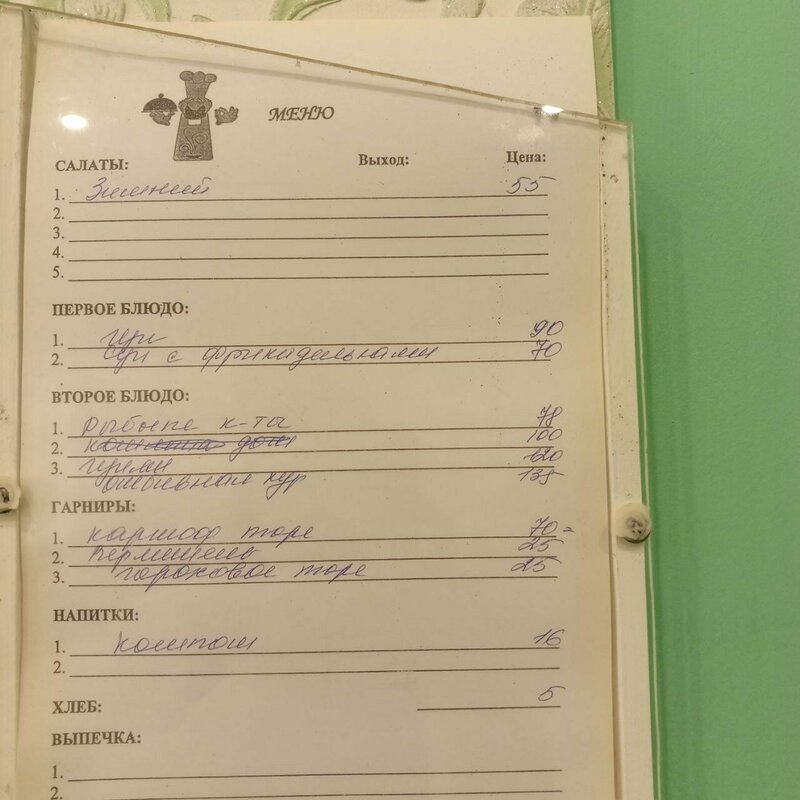 МЕНЮ
САЛАТЫ: Выход: Цена:
1. Зимний 55
2.
3.
4.
5.
ПЕРВОЕ БЛЮДО:
1. 90
2. Суп с фрикадельками 70
ВТОРОЕ БЛЮДО:
1. Рыбные к-ты 78
2. 100
3. 120
отбивная кур 135
ГАРНИРЫ:
1. картоф пюре 70=
2. Вермишель 25
3. гороховое пюре 25
НАПИТКИ:
1. Компот 16
2.
ХЛЕБ: 5
ВЫПЕЧКА:
1.
2.